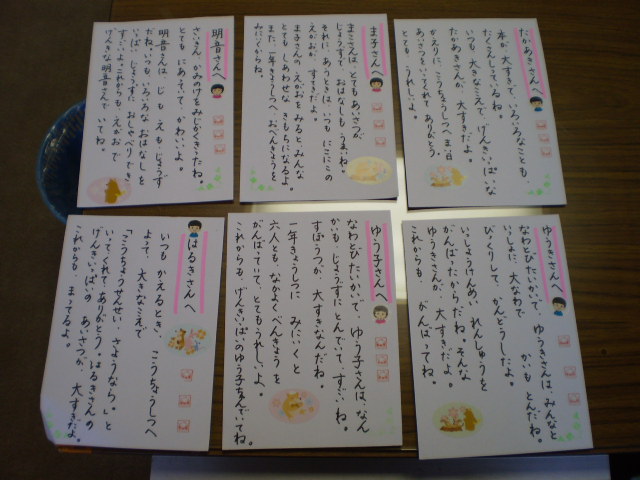 たかあきさんへ
本が大すきで、いろいろなことも、
たくさんしっているね。
いつも、大きなこえで、げんきいっぱいな
たかあきさんが、大すきだよ。
かえりに、こうちょうしつへ、まい日
あいさつをいってくれてありがとう。
とても、うれしいよ。
ま子さんへ
まこさんは、とてもあいさつが
じょうずで、おはなしもうまいね。
それに、あうときは、いつもにこにこの
えがおが、すてきだよ。
ま子さんのえがおをみると、みんな
とてもしあわせなきもちになるよ。
また、一年きょうしつへ、おべんきょうを
みにいくからね。
明音さんへ
さっぱり、かみのけをみじかくきったね。
とてもにあっていて、かわいいよ。
明音さんは、じもえも、じょうず
だね。いつも、いろいろなおはなしを
いっぱい、じょうずにおしゃべりでき、
すごいよ。これからも、えがおで
げんきな明音さんでいてね。
ゆうきさんへ
なわとびたいかいで、ゆうきさんは、みんなと
いっしょに、大なわでかいもとんだね。
びっくりして、かんどうしたよ。
いっしょうけんめい、れんしゅうを
がんばったからだね。そんな
ゆうきさんが、大すきだよ。
これからも、がんばってね。
ゆう子さんへ
なわとびたいかいで、ゆう子さんは、なん
かいも、じょうずにとんでいて、すごいね。
すぽうつが、大すきなんだね。
一年きょうしつに、みにいくと
六人とも、なかよくべんきょうを
がんばっていて、とてもうれしいよ。
これからも、げんきいっぱいのゆう子ちゃんでいてね。
はるきさんへ
いつもかえるとき、こうちょうしつへ
よって、大きなこえで
「こうちょうせんせい、さようなら。」と
いってくれて、ありがとう。はるきさんの
げんきいっぱいのあいさつが、大すきだよ。
これからも、まってるよ。